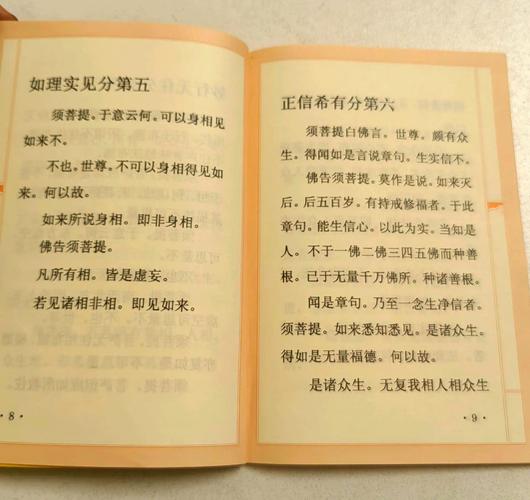 如理实见分第五
须菩提。于意云何。可以身相见
如来不。
不也。世尊。不可以身相得见如
来。何以故。
如来所说身相。即非身相。
佛告须菩提。
凡所有相。皆是虚妄。
若见诸相非相。即见如来。
·8·
正信希有分第六
须菩提白佛言。世尊。颇有众
生。得闻如是言说章句。生实信不。
佛告须菩提。莫作是说。如来灭
后。后五百岁。有持戒修福者。于此
章句。能生信心。以此为实。当知是
人。不于一佛二佛三四五佛而种善
根。已于无量千万佛所。种诸善根。
闻是章句。乃至一念生净信者。
须菩提。如来悉知悉见。是诸众生。
得如是无量福德。何以故。
是诸众生。无复我相人相众生
·9·